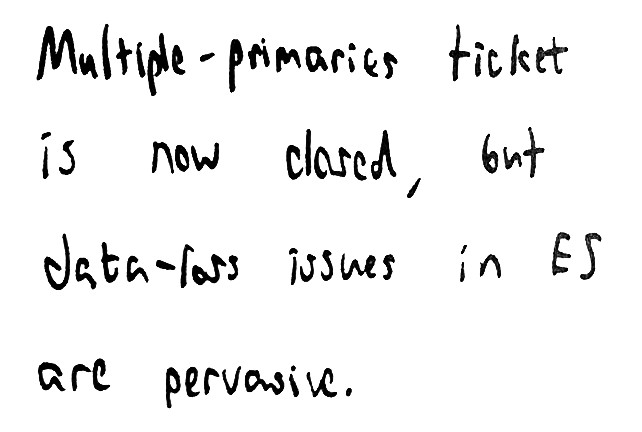 Multiple-primaries ticket
is now closed, but
data-loss issues in ES
are pervasive.